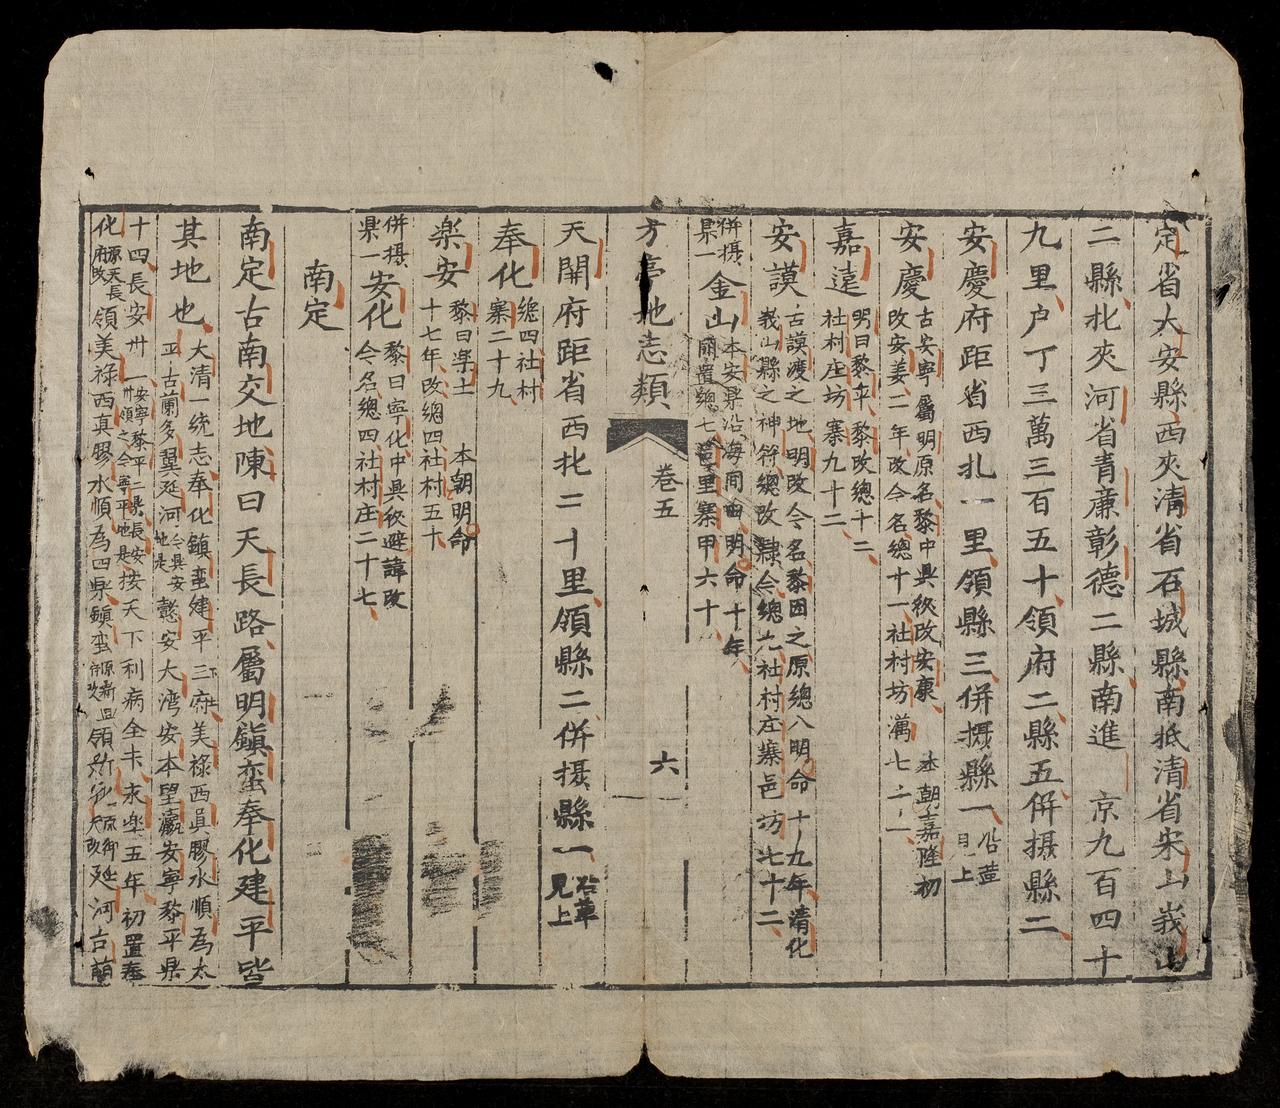 定省大安縣西夾清省石城縣南抵清省宋山峩山
二縣北夾河省青㢘彰德二縣南進　京九百四十
九里户丁三萬三百五十領府二縣五併摄縣二
安慶府距省西北一里領縣三併摄縣一
安慶
古安寧屬明原名黎中興後改安康　本朝嘉隆初
改安姜二年改今名總十一社村坊
嘉遠
明曰黎平黎改總十二
社村庄坊寨九十二
安謨
古謨渡之地明改今名黎因之原總八明命十九年清化
峩山縣之神符總改隸今總九社村庄寨邑坊七十二
併摄
県一
金山
本安県沿海
置總七
里寨甲六十
方亭地志類
卷五
六
天關府距省西北二十里領縣二併摄縣一
沿革
見上
奉化
總四社村
寨二十九
楽安
黎曰楽土　本朝明命
十七年改總四社村五十
併摄
県一
安化
黎曰寧化中興後避諱改
今名總四社村庄二十七
南定
南定古南交地陳曰天長路屬明鎮蛮奉化建平皆
其地也
大清一統志奉化鎮蛮建平三府美祿西真膠水順為太
平古蘭多翼延河
懿安大湾安本望瀛安寧黎平県
十四長安州一
按天下利病全书永楽五年初置奉
化
原天長
府改
領美祿西真膠水順為四県鎮蛮
領
延河古蘭